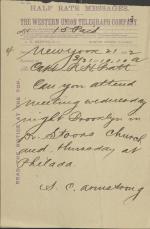 HALF RATE MESSAGES.
THE WESTERN UNION TELEGRAPH COMPANY.
15 Paid
New York 21 - 2
Capt R H Pratt
Can you attend
meeting Wednesday
night Brooklyn in
Dr. Storrs Church
and Thursday at
Philada
S. C. Armstrong